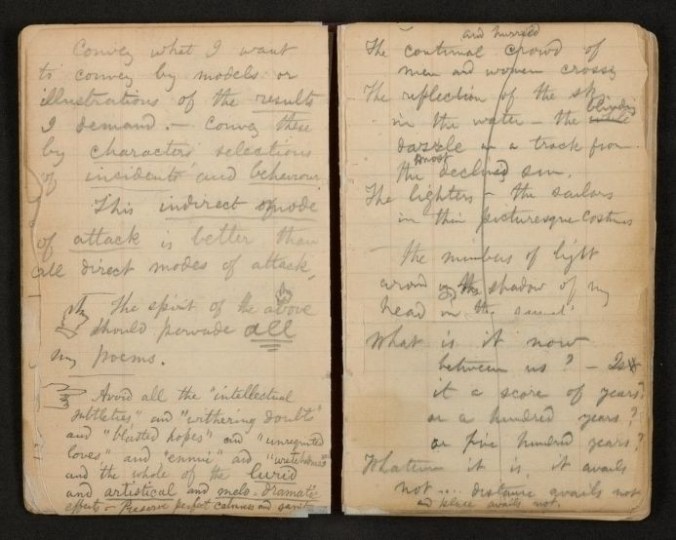 Convey what I want
to convey by models or
illustrations of the results
I demand. — Convey these
by characters selections
of incidents and behaviour.
This indirect mode
of attack is better than
all direct modes of attack.
The spirit of the above
should pervade all
my poems.
Avoid all the "intellectual
subtleties" and "withering doubts"
and "blasted hopes" and "unrequited
loves" and "ennui" and "wretchedness"
and the whole of the lurid
and artistical and melo-dramatic
effects — Preserve perfect calmness and sanity
and hurried
The continual crowd of
men and women crossing
The reflection of the sky
in the water — the blinding
dazzle in a track from
the most declined sun.
The lighters — the sailors
in their picturesque costumes
the nimbus of light
around the shadow of my
head in the
What is it now
between us? — Is
it a score of years?
or a hundred years?
or five hundred years?
Whatever it is, it avails
not ... distance avails not
and place avails not.